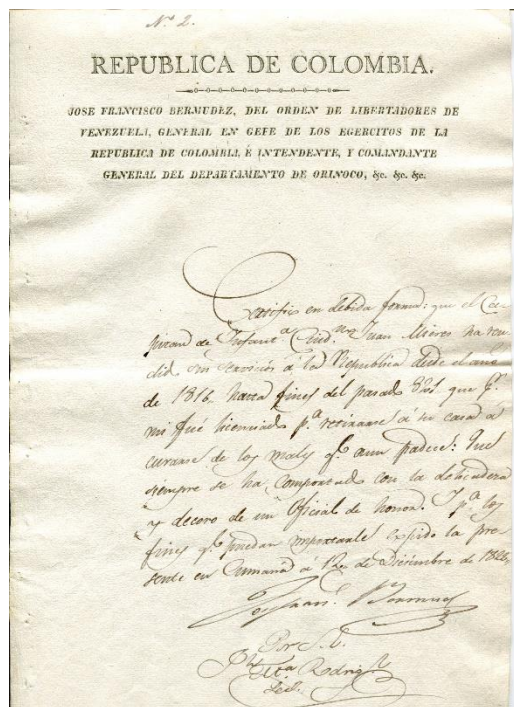 Nº 2.
REPUBLICA DE COLOMBIA.
JOSE FRANCISCO BERMUDEZ, DEL ORDEN DE LIBERTADORES DE
VENEZUELA, GENERAL EN GEFE DE LOS EGERCITOS DE LA
REPUBLICA DE COLOMBIA, É INTENDENTE, Y COMANDANTE
GENERAL DEL DEPARTAMENTO DE ORINOCO, &c. &c. &c.
Certifico en debida forma: que el Ca-
pitan de Infantª Ciudnº Juan Mieres ha ren-
dido sus servicios á la Republica desde el año
de 1816 hasta fines del pasado 821, que pr
mi fué licenciado pª retirarse á su casa a
curarse de los males qe aun padece: Que
siempre se ha comportado con la
y decoro de un Oficial de honor. Y pª los
fines qe puedan importarle expido la pre-
sente en Cumaná a 12 de Diciembre de
Bermudez
Por S. E.
Rodrigz